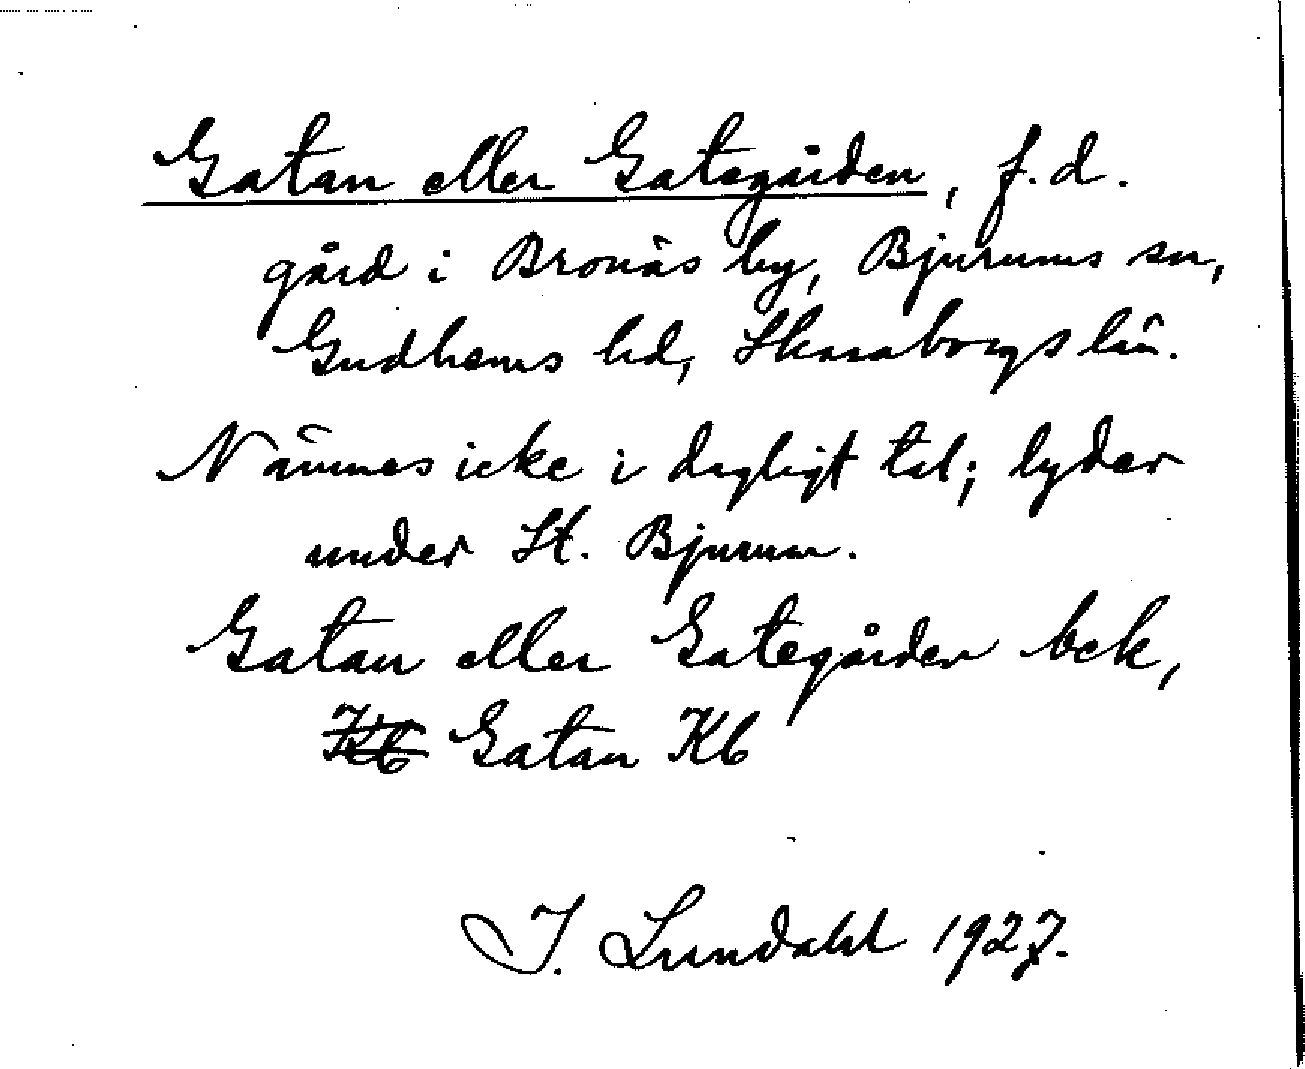 Gatan eller Gategården, f.d.
gård i Bronäs by, Bjurums sn,
Gudhems hd, Skaraborgs län.
Nämnes icke i dagligt tal; lyder
under St. Bjurum.
Gatan eller Gategården bek,
Kb Gatan Kb
I. Lundahl 1927.